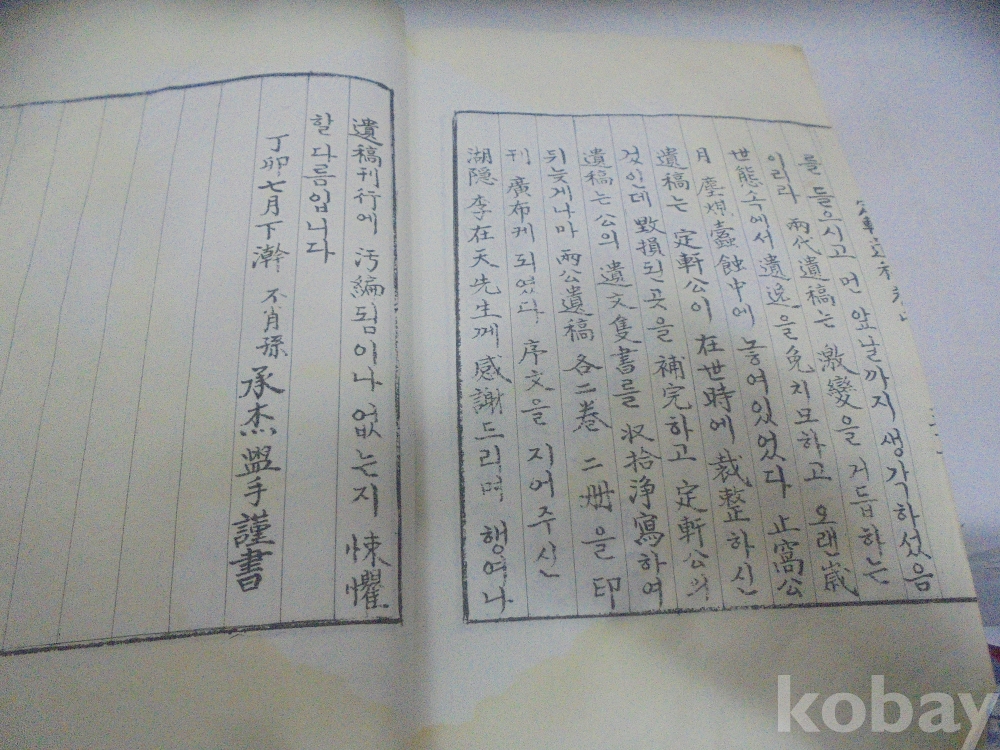 를 들으시고 먼 앞날까지 생각하셨음
이리라 兩代遺稿는 激變을 거듭하는
世態속에서 遺逸을 免치 모하고 오랜 歲
月 塵煤蠹蝕中에 놓여있었다 止窩公
遺稿는 定軒公이 在世時에 裁整하신
것인데 毀損된 곳을 補完하고 定軒公의
遺稿는 公의 遺文隻書를 収拾浄寫하여
뒤늦게나마 兩公遺稿 各二卷 二冊을 印
刊 廣布케 되였다 序文을 지어주신
湖隠 李在天先生께 感謝드리며 행여나
遺稿刊行에 汚編됨이나 없는지 悚懼
할 다름입니다
丁卯七月下澣 不肖孫 承杰盥手謹書
kobay